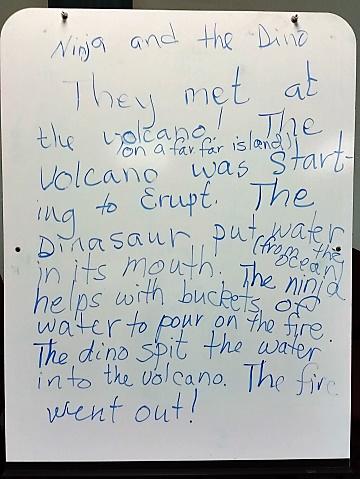 Ninja and the Dino
They met at
the volcano! The
(on a far far island)
volcano was start-
ing to Erupt. The
Dinasaur put water
(from the
ocean)
in its mouth. The ninja
helps with buckets of
water to pour on the fire.
The dino spit the water
into the volcano. The fire
went out!